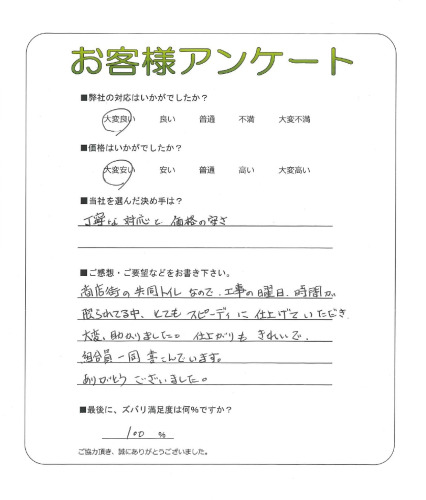 お客様アンケート
■弊社の対応はいかがでしたか？
大変良い 良い 普通 不満 大変不満
■価格はいかがでしたか？
大変安い 安い 普通 高い 大変高い
■当社を選んだ決め手は？
丁寧な対応と価格の安さ
■ご感想・ご要望などをお書き下さい。
商店街の共同トイレなので、工事の曜日、時間が
限られてる中、とてもスピーディに仕上げていただき
大変、助かりました。仕上がりもきれいで、
組合員一同喜こんでいます。
ありがとうございました。
■最後に、ズバリ満足度は何％ですか？
100 %
ご協力頂き、誠にありがとうございました。